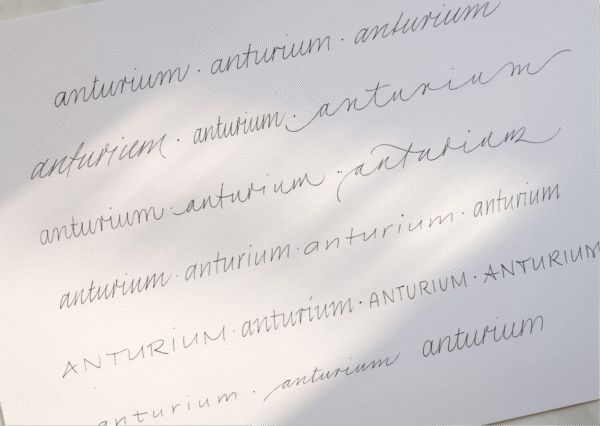 anturium · anturium · anturium
anturium · anturium · anturium
anturium · anturium · anturium
anturium · anturium · anturium · anturium
ANTURIUM · anturium · ANTURIUM · ANTURIUM
anturium · anturium anturium